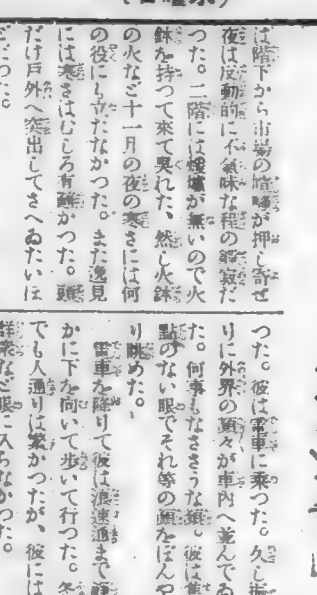 は階下から市場の喧騒が押し寄せ
夜は反動的に不気味な程の静寂だ
つた。二階には煖爐が無いので火
鉢を持つて來て呉れた、然し火鉢
の火など十一月の夜の寒さには何
の役にも立たなかつた。また逸見
には寒さはむしろ有難かつた。頭
だけ戸外へ突出してさへゐたいほ
どだつた。
つた。彼は電車に乘つた。久し振
りに外界の顔々が車内へ並んでゐ
た。何事もなささうな顔。彼は焦
點のない眼でそれ等の顔をぼんや
り眺めた。
電車を降りて彼は浪速通まで靜
かに下を向いて歩いて行つた。冬
でも人通りは繁かつたが、彼には
群衆など眼に入らなかつた。